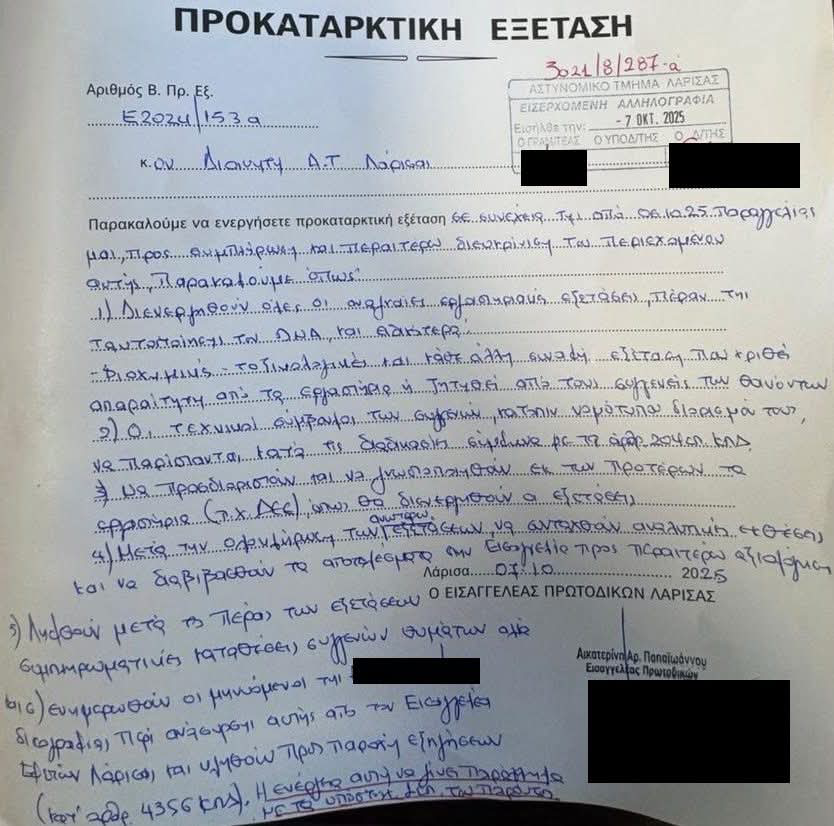 ΠΡΟΚΑΤΑΡΚΤΙΚΗ ΕΞΕΤΑΣΗ
3021/8/287-α΄
Αριθμός Β. Πρ. Εξ.
Ε2024/153α
ΑΣΤΥΝΟΜΙΚΟ ΤΜΗΜΑ ΛΑΡΙΣΑΣ
ΕΙΣΕΡΧΟΜΕΝΗ ΑΛΛΗΛΟΓΡΑΦΙΑ
Εισήλθε την: - 7 ΟΚΤ. 2025
Ο ΓΡΑΜ/ΤΕΑΣ Ο ΥΠΟΔ/ΤΗΣ Ο Δ/ΤΗΣ
κ.ον Διοικητή Α.Τ Λάρισας
Παρακαλούμε να ενεργήσετε προκαταρκτική εξέταση σε συνέχεια της από 06.10.25 Παραγγελίας
μας, προς συμπλήρωση και περαιτέρω διευκρίνιση του περιεχομένου
αυτής, Παρακαλούμε όπως
1) Διενεργηθούν όλες οι αναγκαίες εργαστηριακές εξετάσεις, πέραν της
ταυτοποίησης του DNA, και ειδικότερα:
- Βιοχημικές - τοξικολογικές και κάθε άλλη συναφή εξέταση που κριθεί
απαραίτητη από τα εργαστήρια ή ζητηθεί από τους συγγενείς των θανόντων
2) Οι τεχνικοί σύμβουλοι των συγγενών, κατόπιν νομότυπου διορισμού τους,
να παρίστανται κατά τις διαδικασίες σύμφωνα με το άρθρ. 204 επ ΚΠΔ
3) Να προσδιοριστούν και να γνωστοποιηθούν εκ των προτέρων τα
εργαστήρια (π.χ ΔΕΕ), όπου θα διενεργηθούν οι εξετάσεις
4) Μετά την ολοκλήρωση των ανωτέρω εξετάσεων, να συνταχθούν αναλυτικές εκθέσεις
και να διαβιβασθούν τα αποτελέσματα στην Εισαγγελία προς περαιτέρω αξιολόγηση
Λάρισα 07.10 2025
Ο ΕΙΣΑΓΓΕΛΕΑΣ ΠΡΩΤΟΔΙΚΩΝ ΛΑΡΙΣΑΣ
5) Ληφθούν μετά το πέρας των εξετάσεων
συμπληρωματικές καταθέσεις συγγενών θυμάτων
Αικατερίνη Αρ. Παπαϊωάννου
Εισαγγελέας Πρωτοδικών
6) ενημερωθούν οι μηνυόμενοι της
δικογραφίας, περί ανάσυρσης αυτής από την Εισαγγελία
Εφετών Λάρισας και κληθούν προς παροχή εξηγήσεων
(κατ' άρθρ. 43§6 ΚΠΔ). Η ενέργεια αυτή να γίνει παράλληλα
με τα υπόλοιπα της παρούσας.